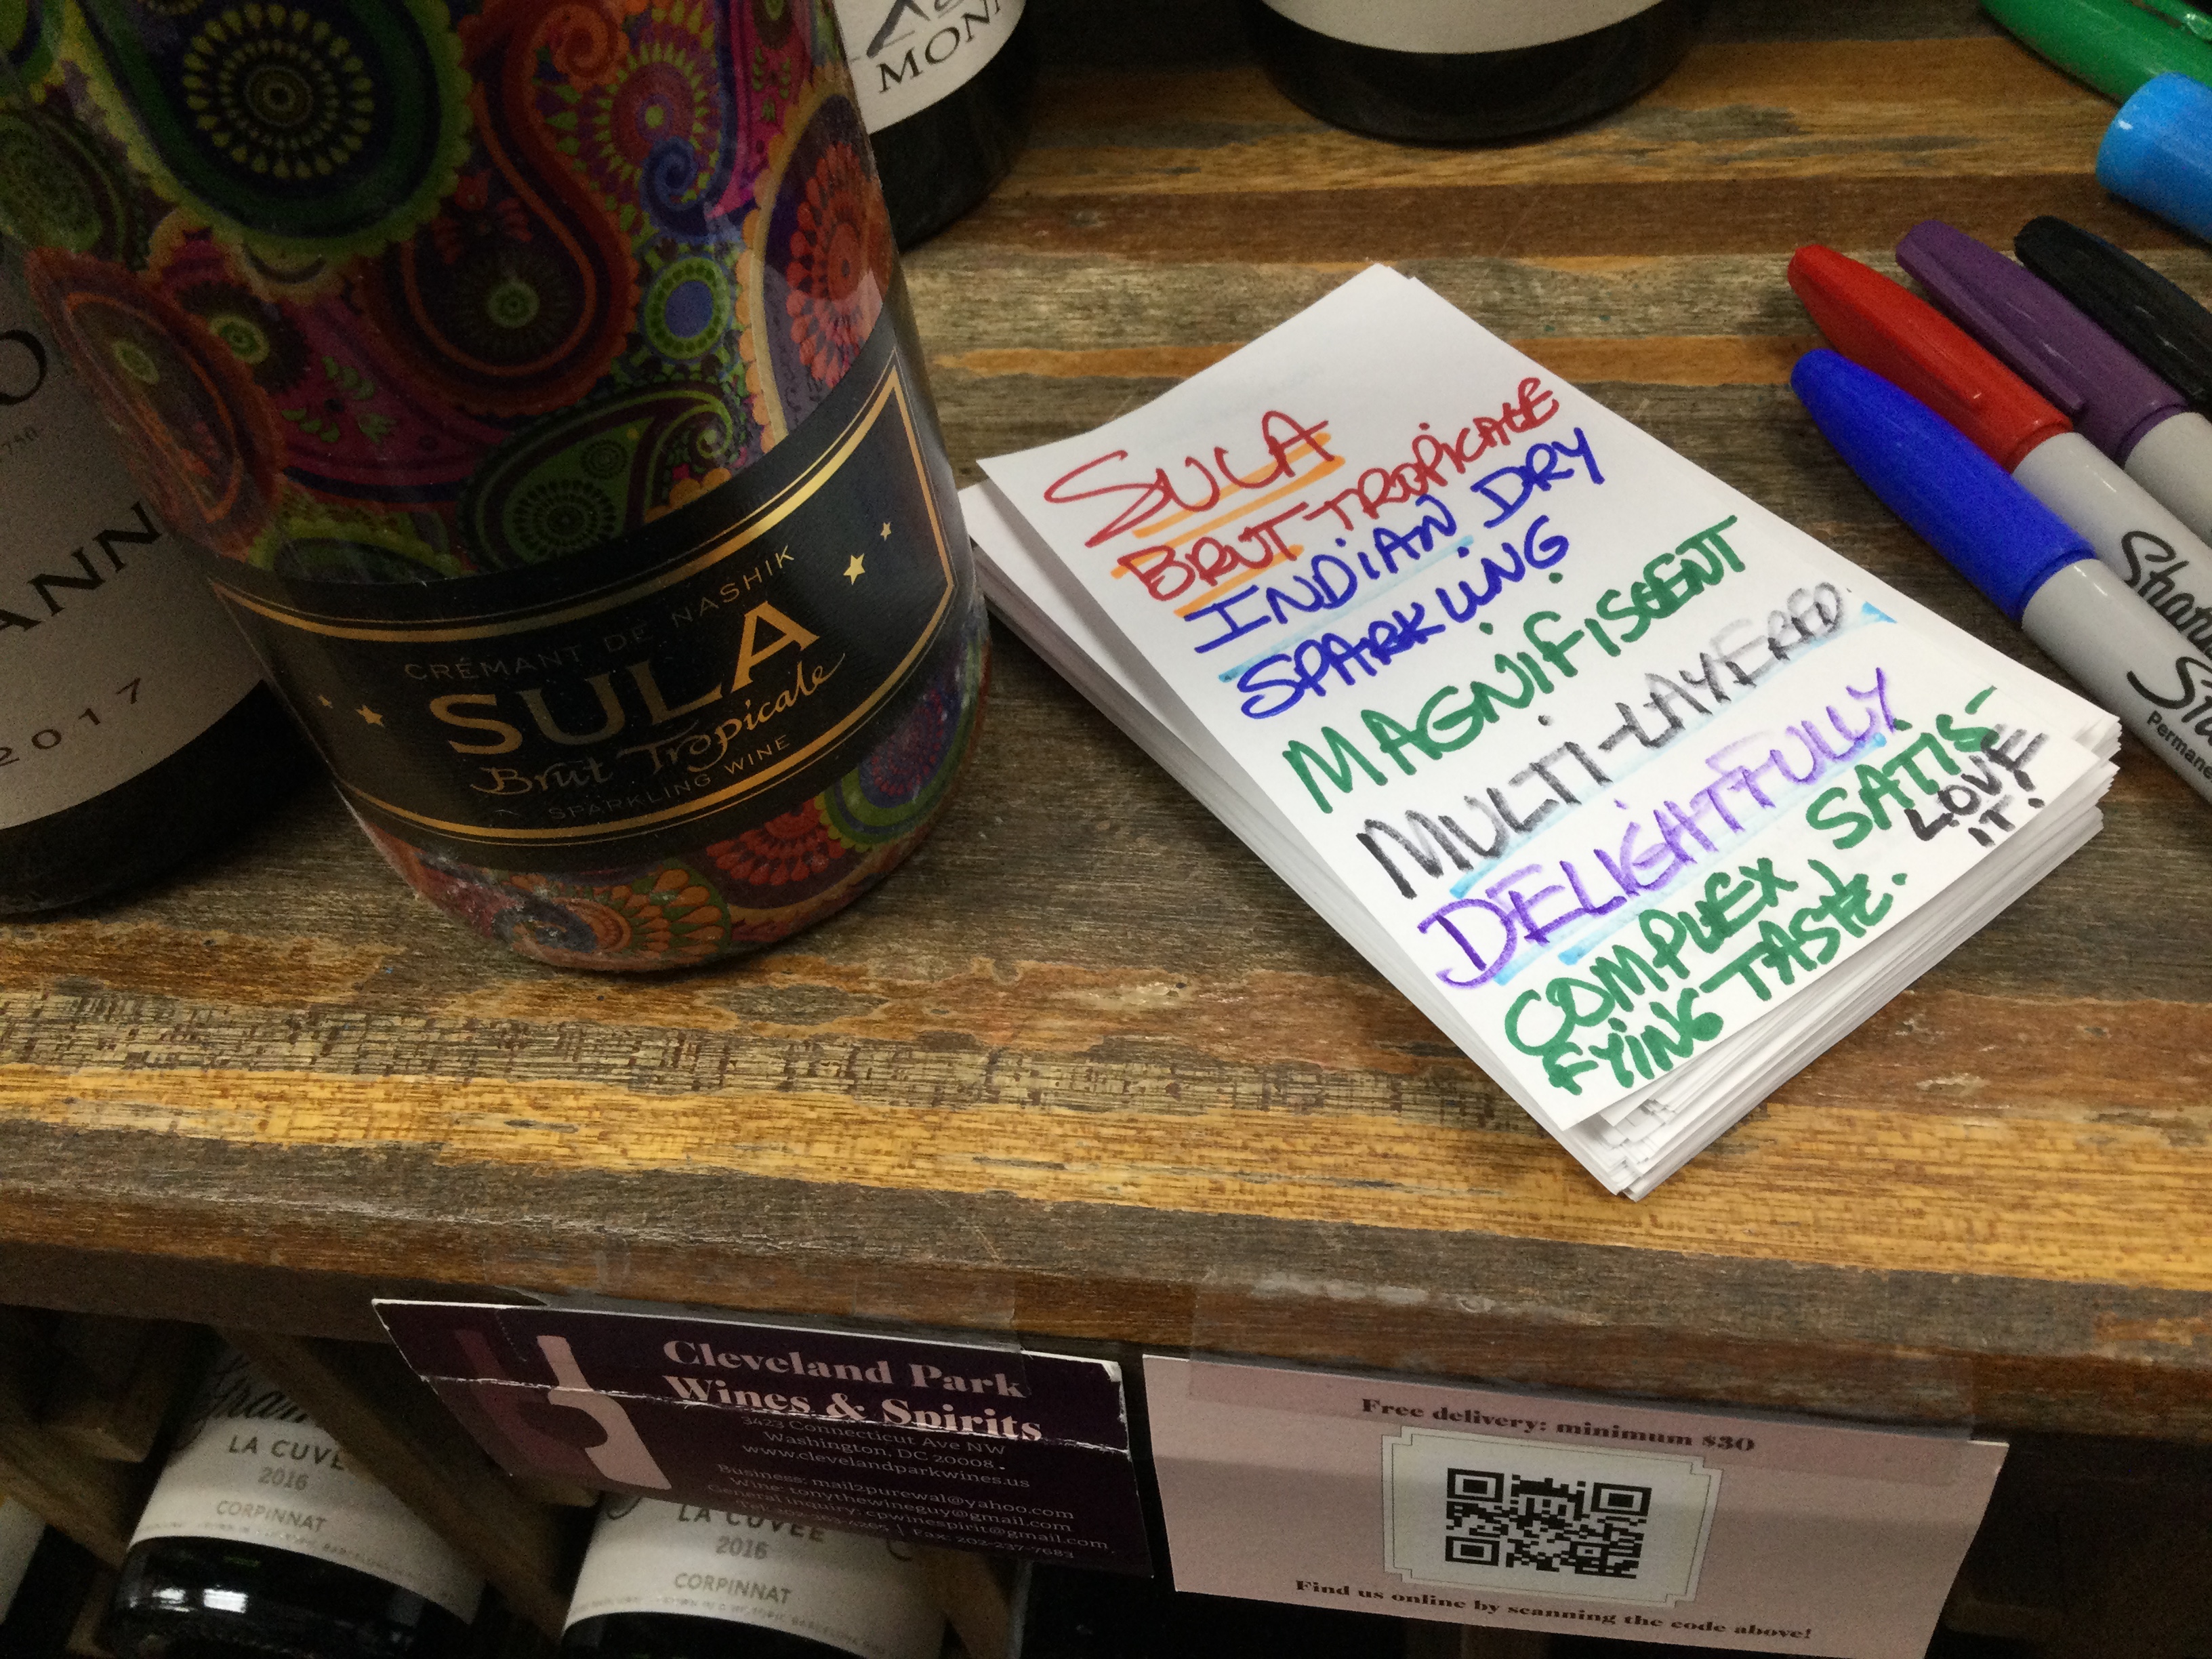 MON
ANN
2017
CRÉMANT DE NASHIK
SULA
Brut Tropicale
SPARKLING WINE
SULA
BRUT TROPICALE
INDIAN DRY
SPARKLING
MAGNIFISCENT
MULTI-LAYERED.
DELIGHTFULLY
COMPLEX SATIS-
FYING TASTE.
LOVE
IT.
Sharpie
Permane
Cleveland Park
Wines & Spirits
3423 Connecticut Ave NW
Washington, DC 20008
www.clevelandparkwines.us
Business: mail2purewal@yahoo.com
Wine: tonythewineguy@gmail.com
General inquiry: cpwinespirit@gmail.com
Fax: 202-237-7683
Free delivery: minimum $30
Find us online by scanning the code above!
LA CUVÉE
2016
CORPINNAT
LA CUVÉE
2016
CORPINNAT